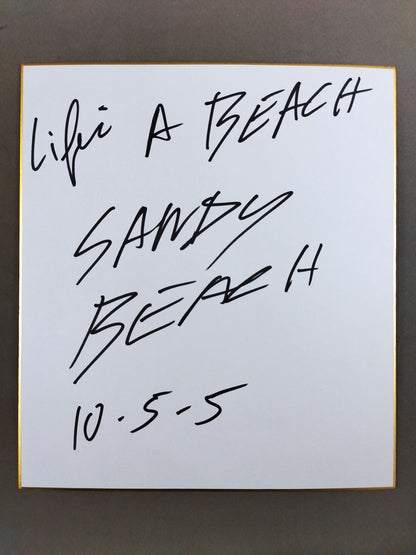 Life's A BEACH
SANDY
BEACH
10-5-5